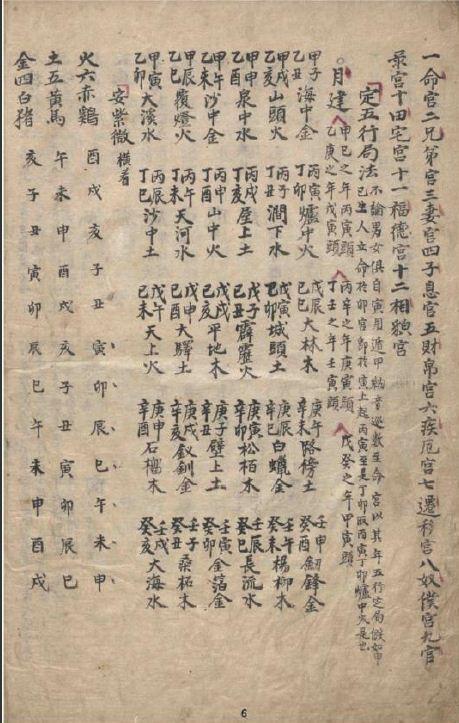 一命宮二兄第宮三妻宮四子息宮五財帛宮六疾厄宮七遷移宮八奴僕宮九官
祿宮十田宅宮十一福德宮十二相貌宮
定五行局法 不論男女俱自寅用遁甲納音逆數至命宮以其年五行定局假如甲
己生人立命於卯宮即於寅上起丙寅至是丁卯取丙寅丁卯爐中火是也
月建 甲己之年丙寅頭 丙辛之年庚寅頭 戊癸之年甲寅頭
乙庚之年戊寅頭 丁壬之年壬寅頭
甲子乙丑海中金 丙寅丁卯爐中火 戊辰己巳大林木 庚午辛未路傍土 壬申癸酉劍鋒金
甲戌乙亥山頭火 丙子丁丑澗下水 戊寅己卯城頭土 庚辰辛巳白蠟金 壬午癸未楊柳木
甲申乙酉泉中水 丙戌丁亥屋上土 戊子己丑霹靂火 庚寅辛卯松栢木 壬辰癸巳長流水
甲午乙未沙中金 丙申丁酉山中火 戊戌己亥平地木 庚子辛丑壁上土 壬寅癸卯金箔金
甲辰乙巳覆燈火 丙午丁未天河水 戊申己酉大驛土 庚戌辛亥釵釧金 壬子癸丑桑柘木
甲寅乙卯大溪水 丙辰丁巳沙中土 戊午己未天上火 庚申辛酉石榴木 壬戌癸亥大海水
安紫微 橫看
火六赤鷄 酉戌亥子丑寅卯辰巳午未申
土五黃馬 午未申酉戌亥子丑寅卯辰巳
金四白猪 亥子丑寅卯辰巳午未申酉戌
6